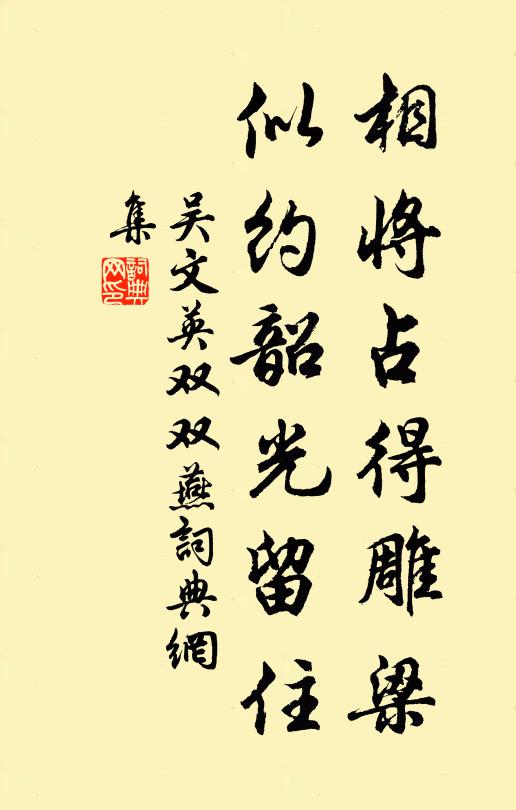 相将占得雕梁
似约韶光留住
吴文英双双燕詞典網
集
詞典
网印